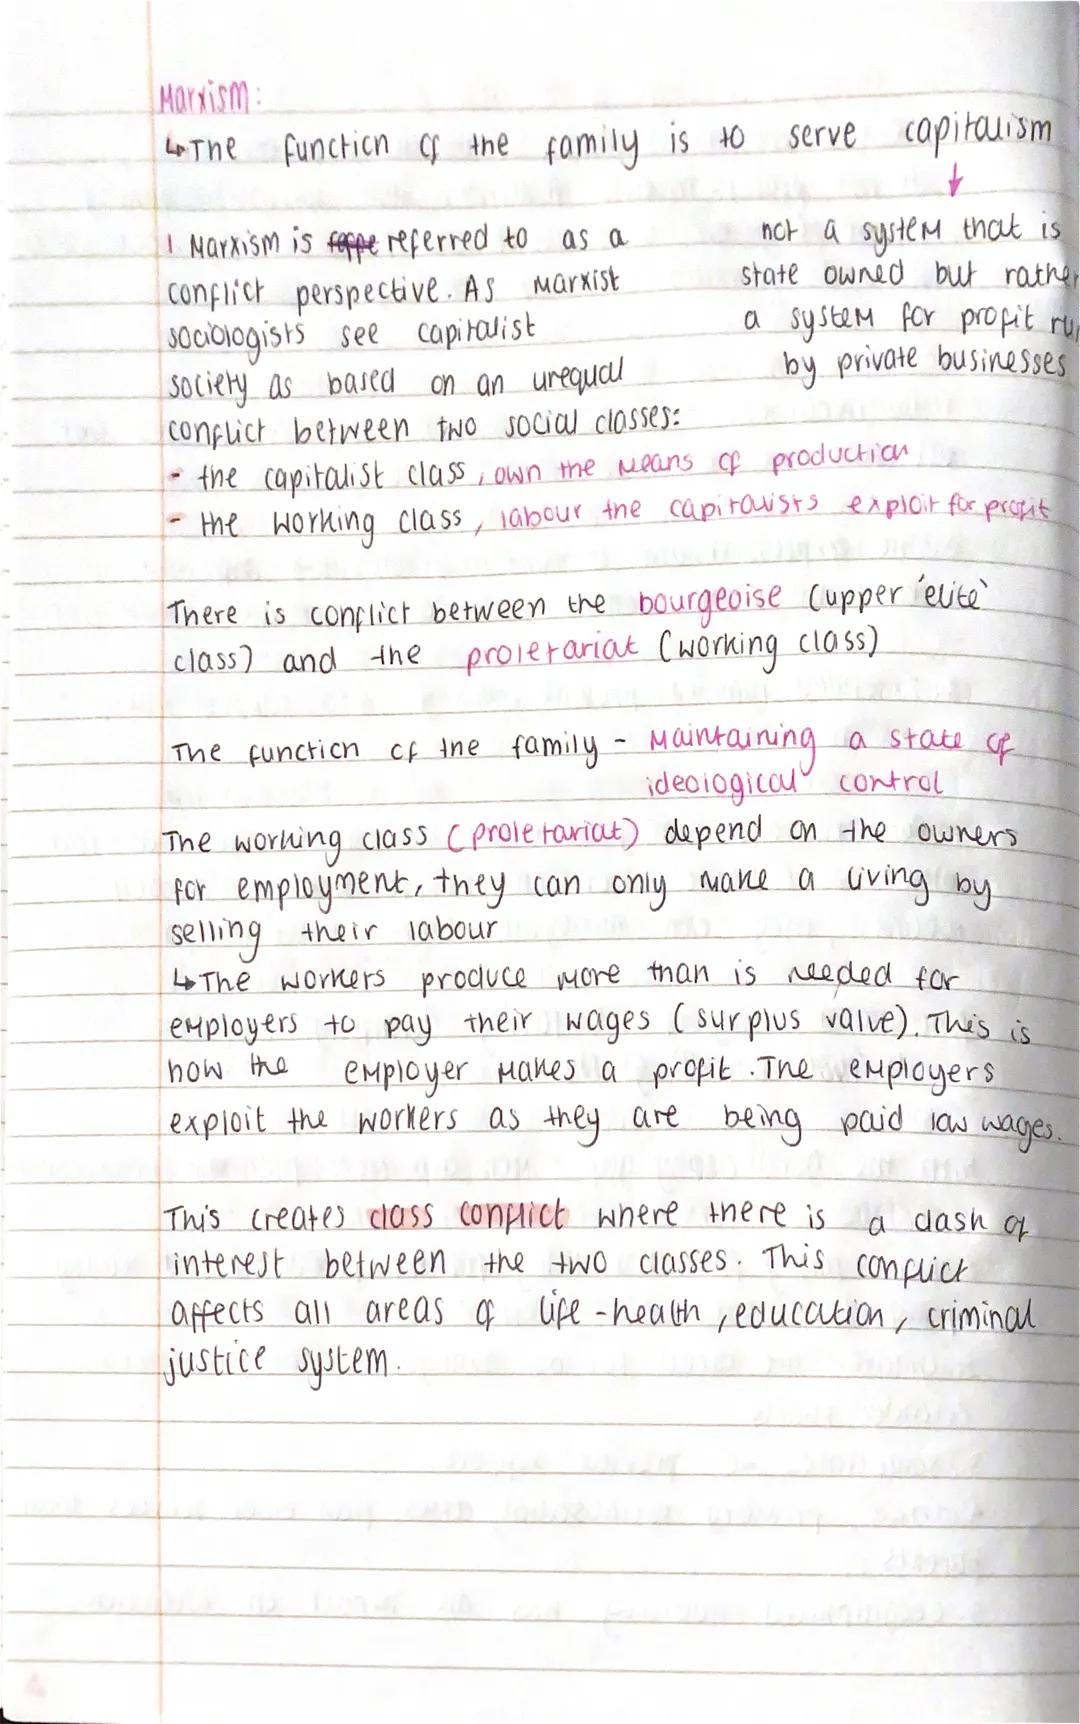 Marxism:
↳The function of the family is to serve capitalism
↓
not a system that is
state owned but rather
a system for profit
by private businesses
1 Marxism is referred to as a
conflict perspective. As Marxist
sociologists see capitalist
society as based on an unequal
conflict between two social classes:
- the capitalist class, own the means of production
- the working class, labour the capitalists exploit for profit
There is conflict between the bourgeoise (upper 'elite'
class) and the proletariat (working class)
The function of the family - Maintaining a state of
ideological control
The working class (proletariat) depend on the owners
for employment, they can only make a living by
selling their labour
↳The workers produce more than is needed for
employers to pay their wages (surplus value). This is
how the employer makes a profit. The employers
exploit the workers as they are being paid low wages.
This creates class conflict where there is a clash of
interest between the two classes. This conflict
affects all areas of life - health, education, criminal
justice system.